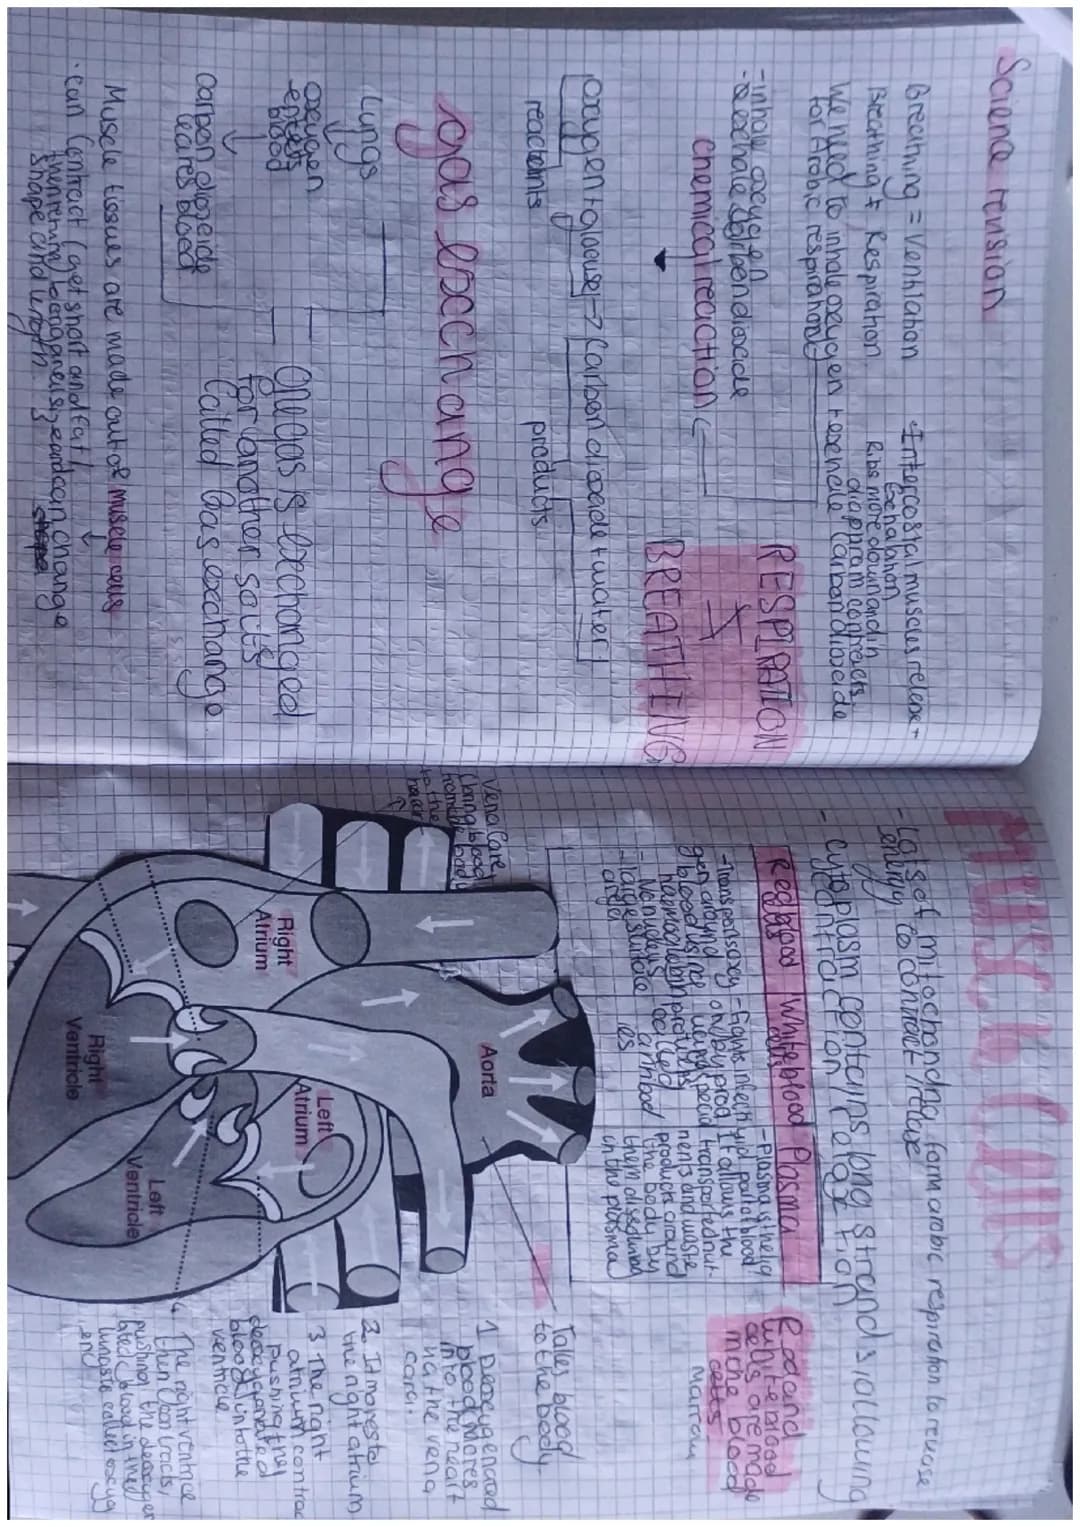 Science revision
Breathing = Ventilation
Breathing ≠ Respiration
We need to inhale oxygen + exhale carbon dioxide
for Arobic respiration
- Intercostal muscles release +
Exhalation
Ribs move down and in
diappram contracts
- inhale oxygen
- exhale carbon dioxide
chemical reaction
RESPIRATION
≠
BREATHING
oxygen + glouse → Carbon dioxide + water
reactants
products
gas Exchange
Lungs
oxygen
enters
blood
carbon diozeide
leaves blood
One gas is Exchanged
for another so its
called Gas exchange
Muscle tissues are made out of muscle cells
· Can Contract (get short and fat)
shape and length
MUSCLE CELLS
- Lots of mitochondria, for arobic respiration to release
energy to contract/relax
- Cytoplasm contains long strands allowing
contraction/relaxation
Red blood cells
White blood cells
Plasma
- Transports oxy
gen around
blood using
haemoglobin
- No nucleus
- large surface
area
- Fights infecti
on/by prod
using special
proteins
called
antibod
ies
- Plasma is the liq
uid part of blood
it allows the
transported nut-
rients and waste
products around
the body by
them dissolving
in the plasma
Red and
white blood
cells are made
in the blood
marrow
Vena Cava
(bring blood
from the body
to the
heart
Right
Atrium
Right
Ventricle
Aorta
Left
Atrium
Left
Ventricle
Takes blood
to the body.
1 Deoxygenated
blood moves
into the heart
via the vena
cava.
2. It moves to
the right atrium
3 The right
atrium contrac
pushing the
deoxygenated
blood into the
ventricle
4. The right ventricle
then contracts,
pushing the deoxygen
ated blood in the
lungs to collect oxyg
en